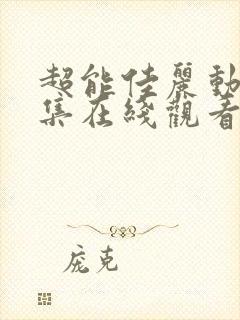 超能佳麗動
集在綫觀看
庞克